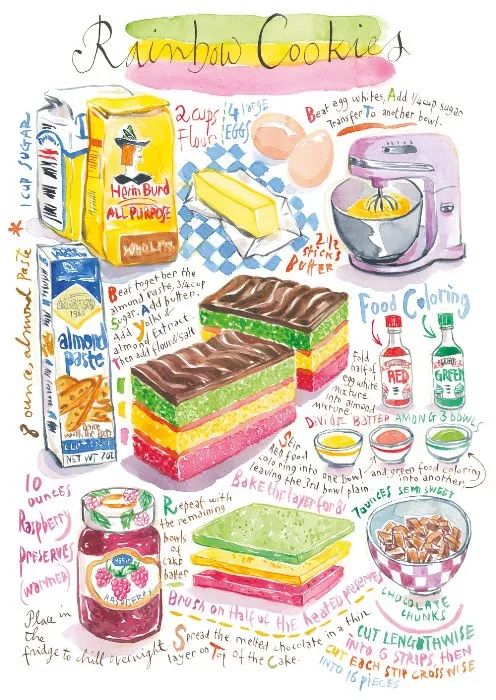 Rainbow Cookies
1 CUP SUGAR
Herm Burd
ALL PURPOSE
2 cups
Flour
4 large
EGGS
Beat egg whites, Add 1/4 cup sugar
Transfer To another bowl.
2 1/2
STICKS
BUTTER
8 ounces almond paste *
1969
almond
paste
NET WT 7 OZ
Beat together the
almond paste, 3/4 cup
Sugar. Add butter.
Add Yolks &
almond Extract
Then add flour & salt
Food Coloring
RED
GREEN
Fold
half of
egg white
mixture
into almond
mixture.
DIVIDE BATTER AMONG 3 BOWLS
Stir
Red food
coloring into one bowl and green food coloring
into another,
leaving the 3rd bowl plain
Bake the layer for 8
10
ounces
Raspberry
Preserves
(warmed)
RASPBERRY
Repeat with
the remaining
bowls
of
cake
batter
Brush on Half of the heated preserves
7 ounces SEMI SWEET
CHOCOLATE
CHUNKS
Place in
the
fridge to chill overnight
Spread the melted chocolate in a thin
layer on Top of the Cake.
CUT LENGTHWISE
INTO 6 STRIPS, THEN
CUT EACH STIP CROSSWISE
INTO 16 PIECES